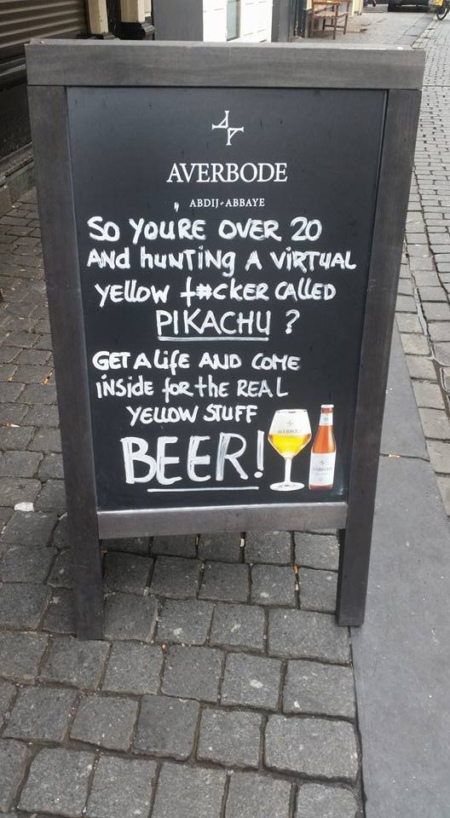 AVERBODE
ABDIJ-ABBAYE
SO YOU'RE OVER 20
AND HUNTING A VIRTUAL
YELLOW F#CKER CALLED
PIKACHU ?
GET A LIFE AND COME
INSIDE FOR THE REAL
YELLOW STUFF
BEER!